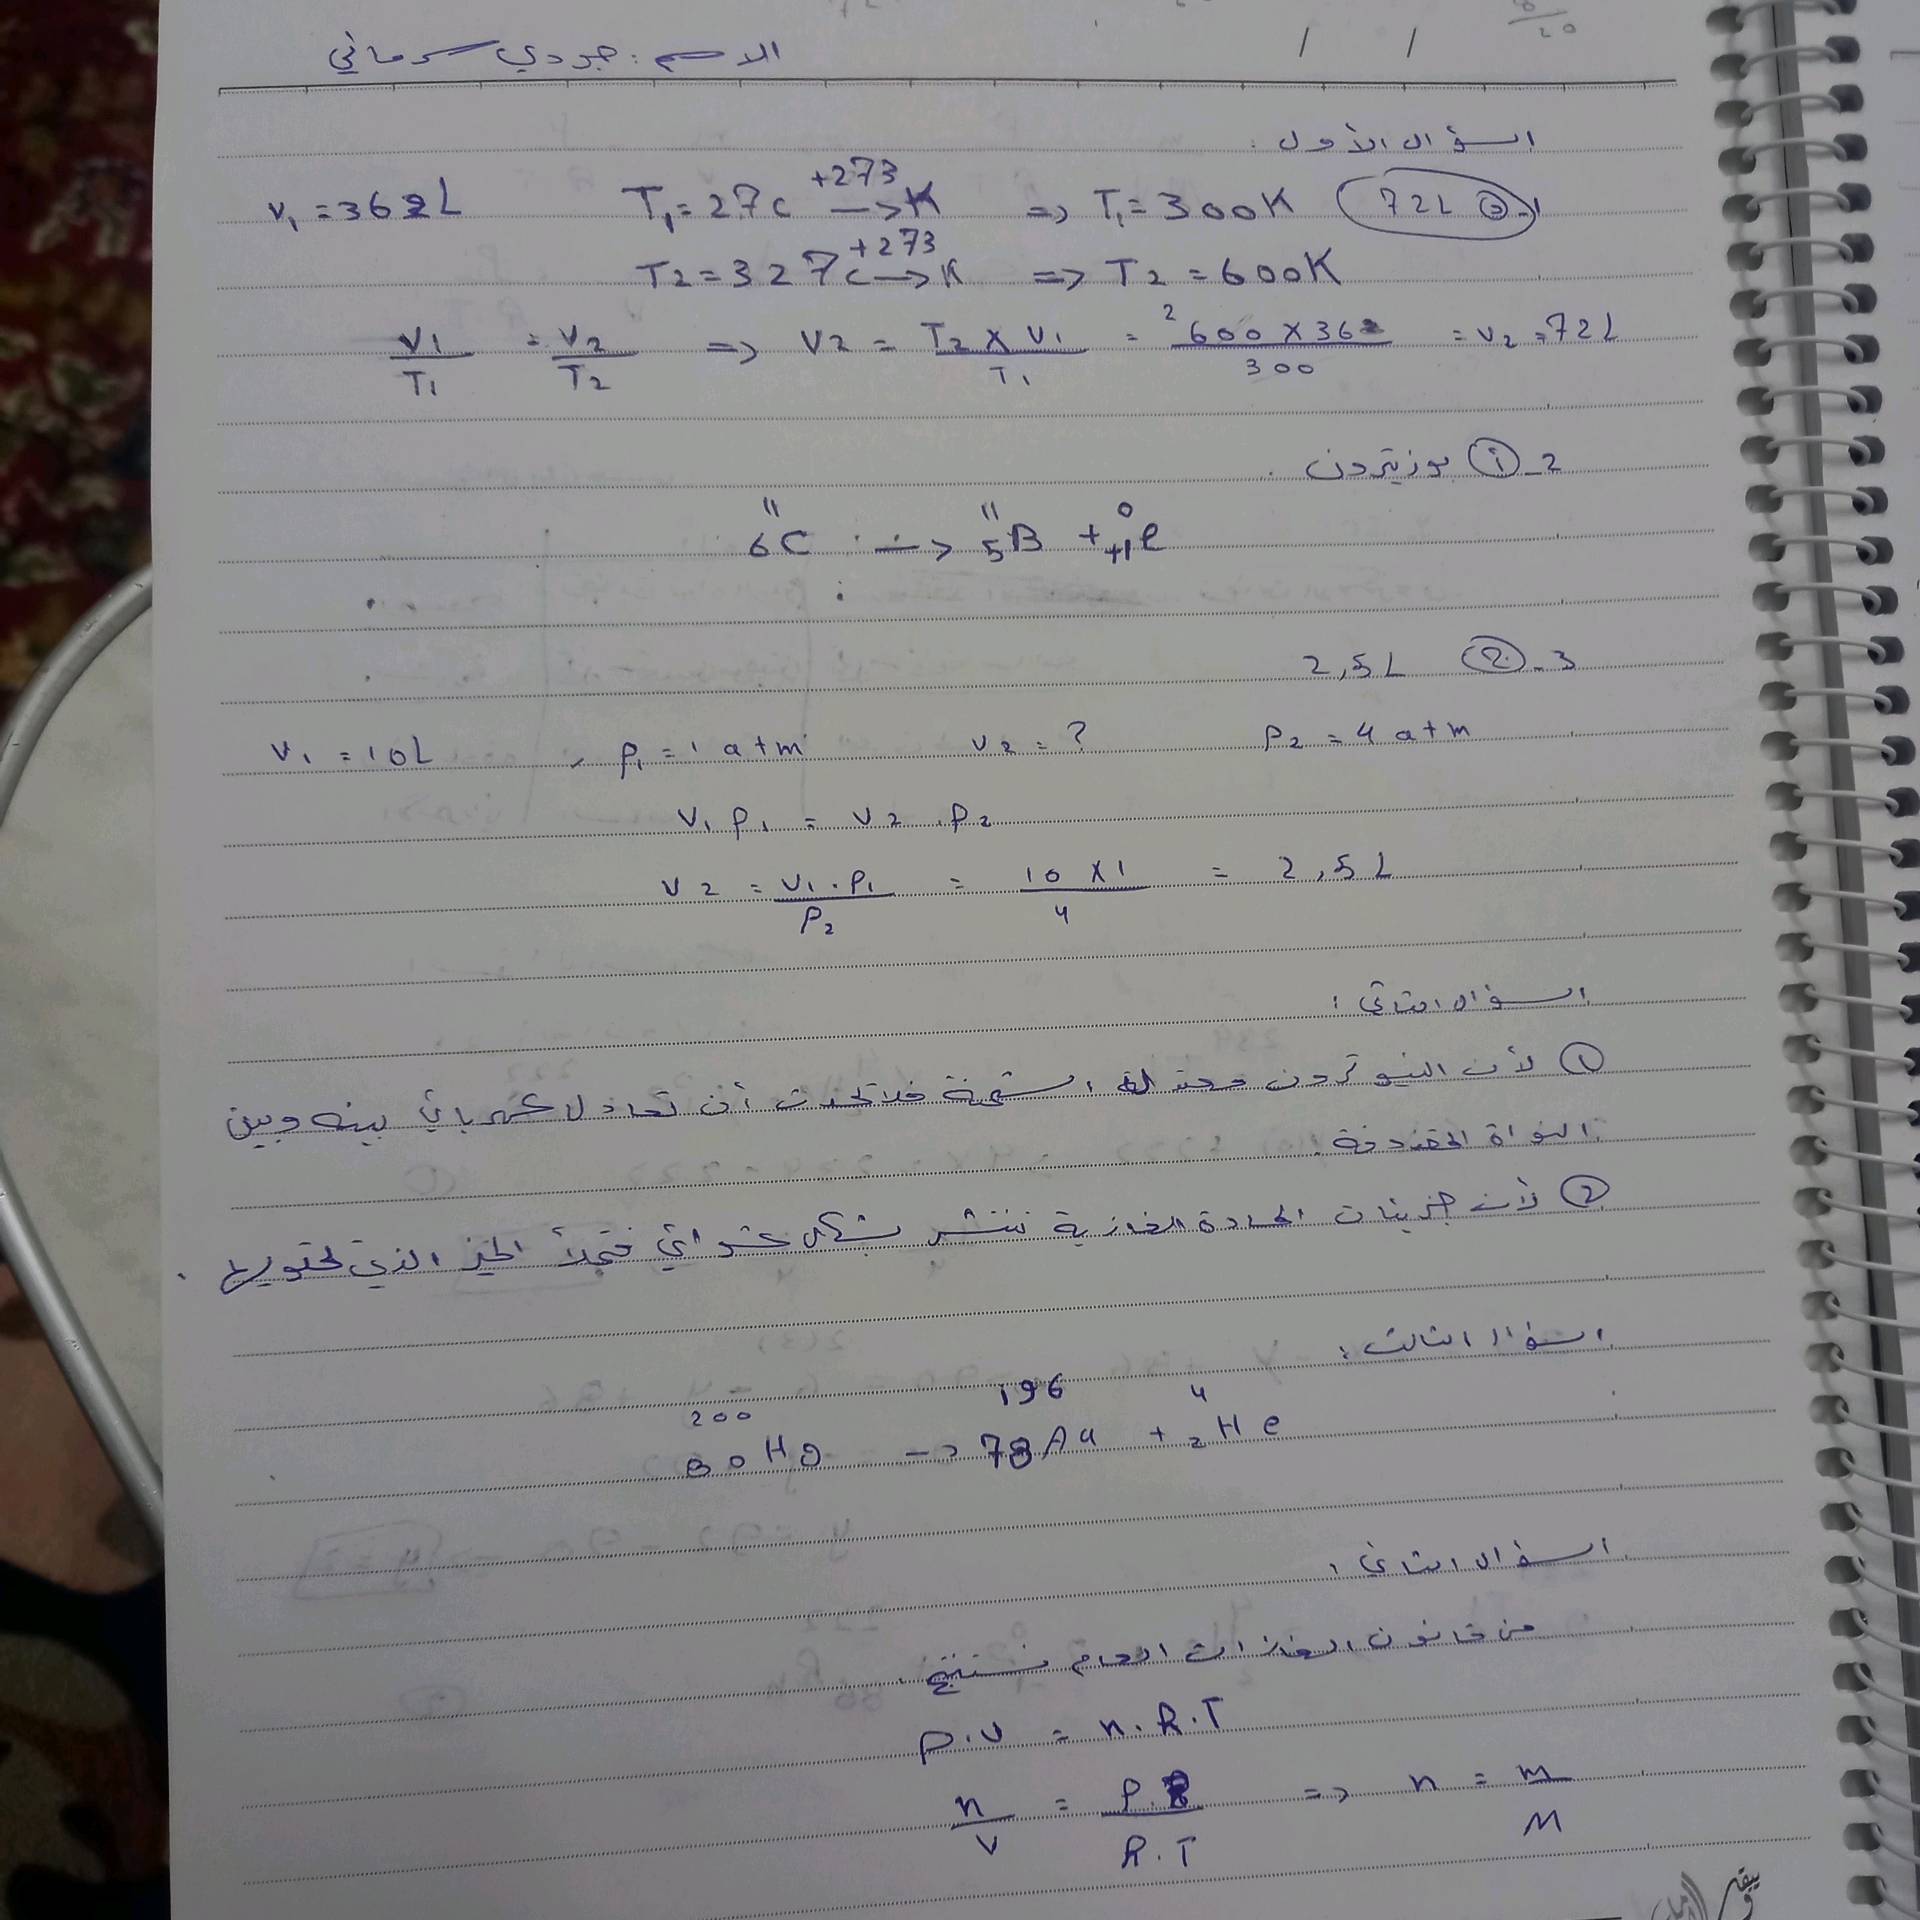 الاسم : جودي كرماني
/ /
السؤال الأول :
V₁ = 36L T₁ = 27c +273 → K => T₁ = 300K 72L ③ -1
T2 = 327c +273 → K => T2 = 600K
V1/T1 = V2/T2 => V2 = T2 x V1 / T1 = ² 600 x 36 / 300 = V2 = 72L
2 - ① بوزيترون .
¹¹₆C → ¹¹₅B + ⁰₊₁e
3 - ② 2,5L
V₁ = 10L , P₁ = 1 atm V2 = ? P2 = 4 atm
V₁ P₁ = V2 . P2
V2 = V1 . P1 / P2 = 10 x 1 / 4 = 2,5L
السؤال الثاني :
① لأن النيوترون معتدلة الشحنة فلا تحدث أن تعادل كهربائي بينه وبين
النواة المقذوفة .
② لأن جزيئات المادة الغازية تنتشر بشكل عشوائي فتملأ الحيز الذي تحتويها .
السؤال الثالث :
²⁰⁰₈₀Hg → ¹⁹⁶₇₈Au + ⁴₂He
السؤال الثاني :
من قانون الغازات العام نستنتج .
P.V = n.R.T
n/V = P/R.T => n = m/M